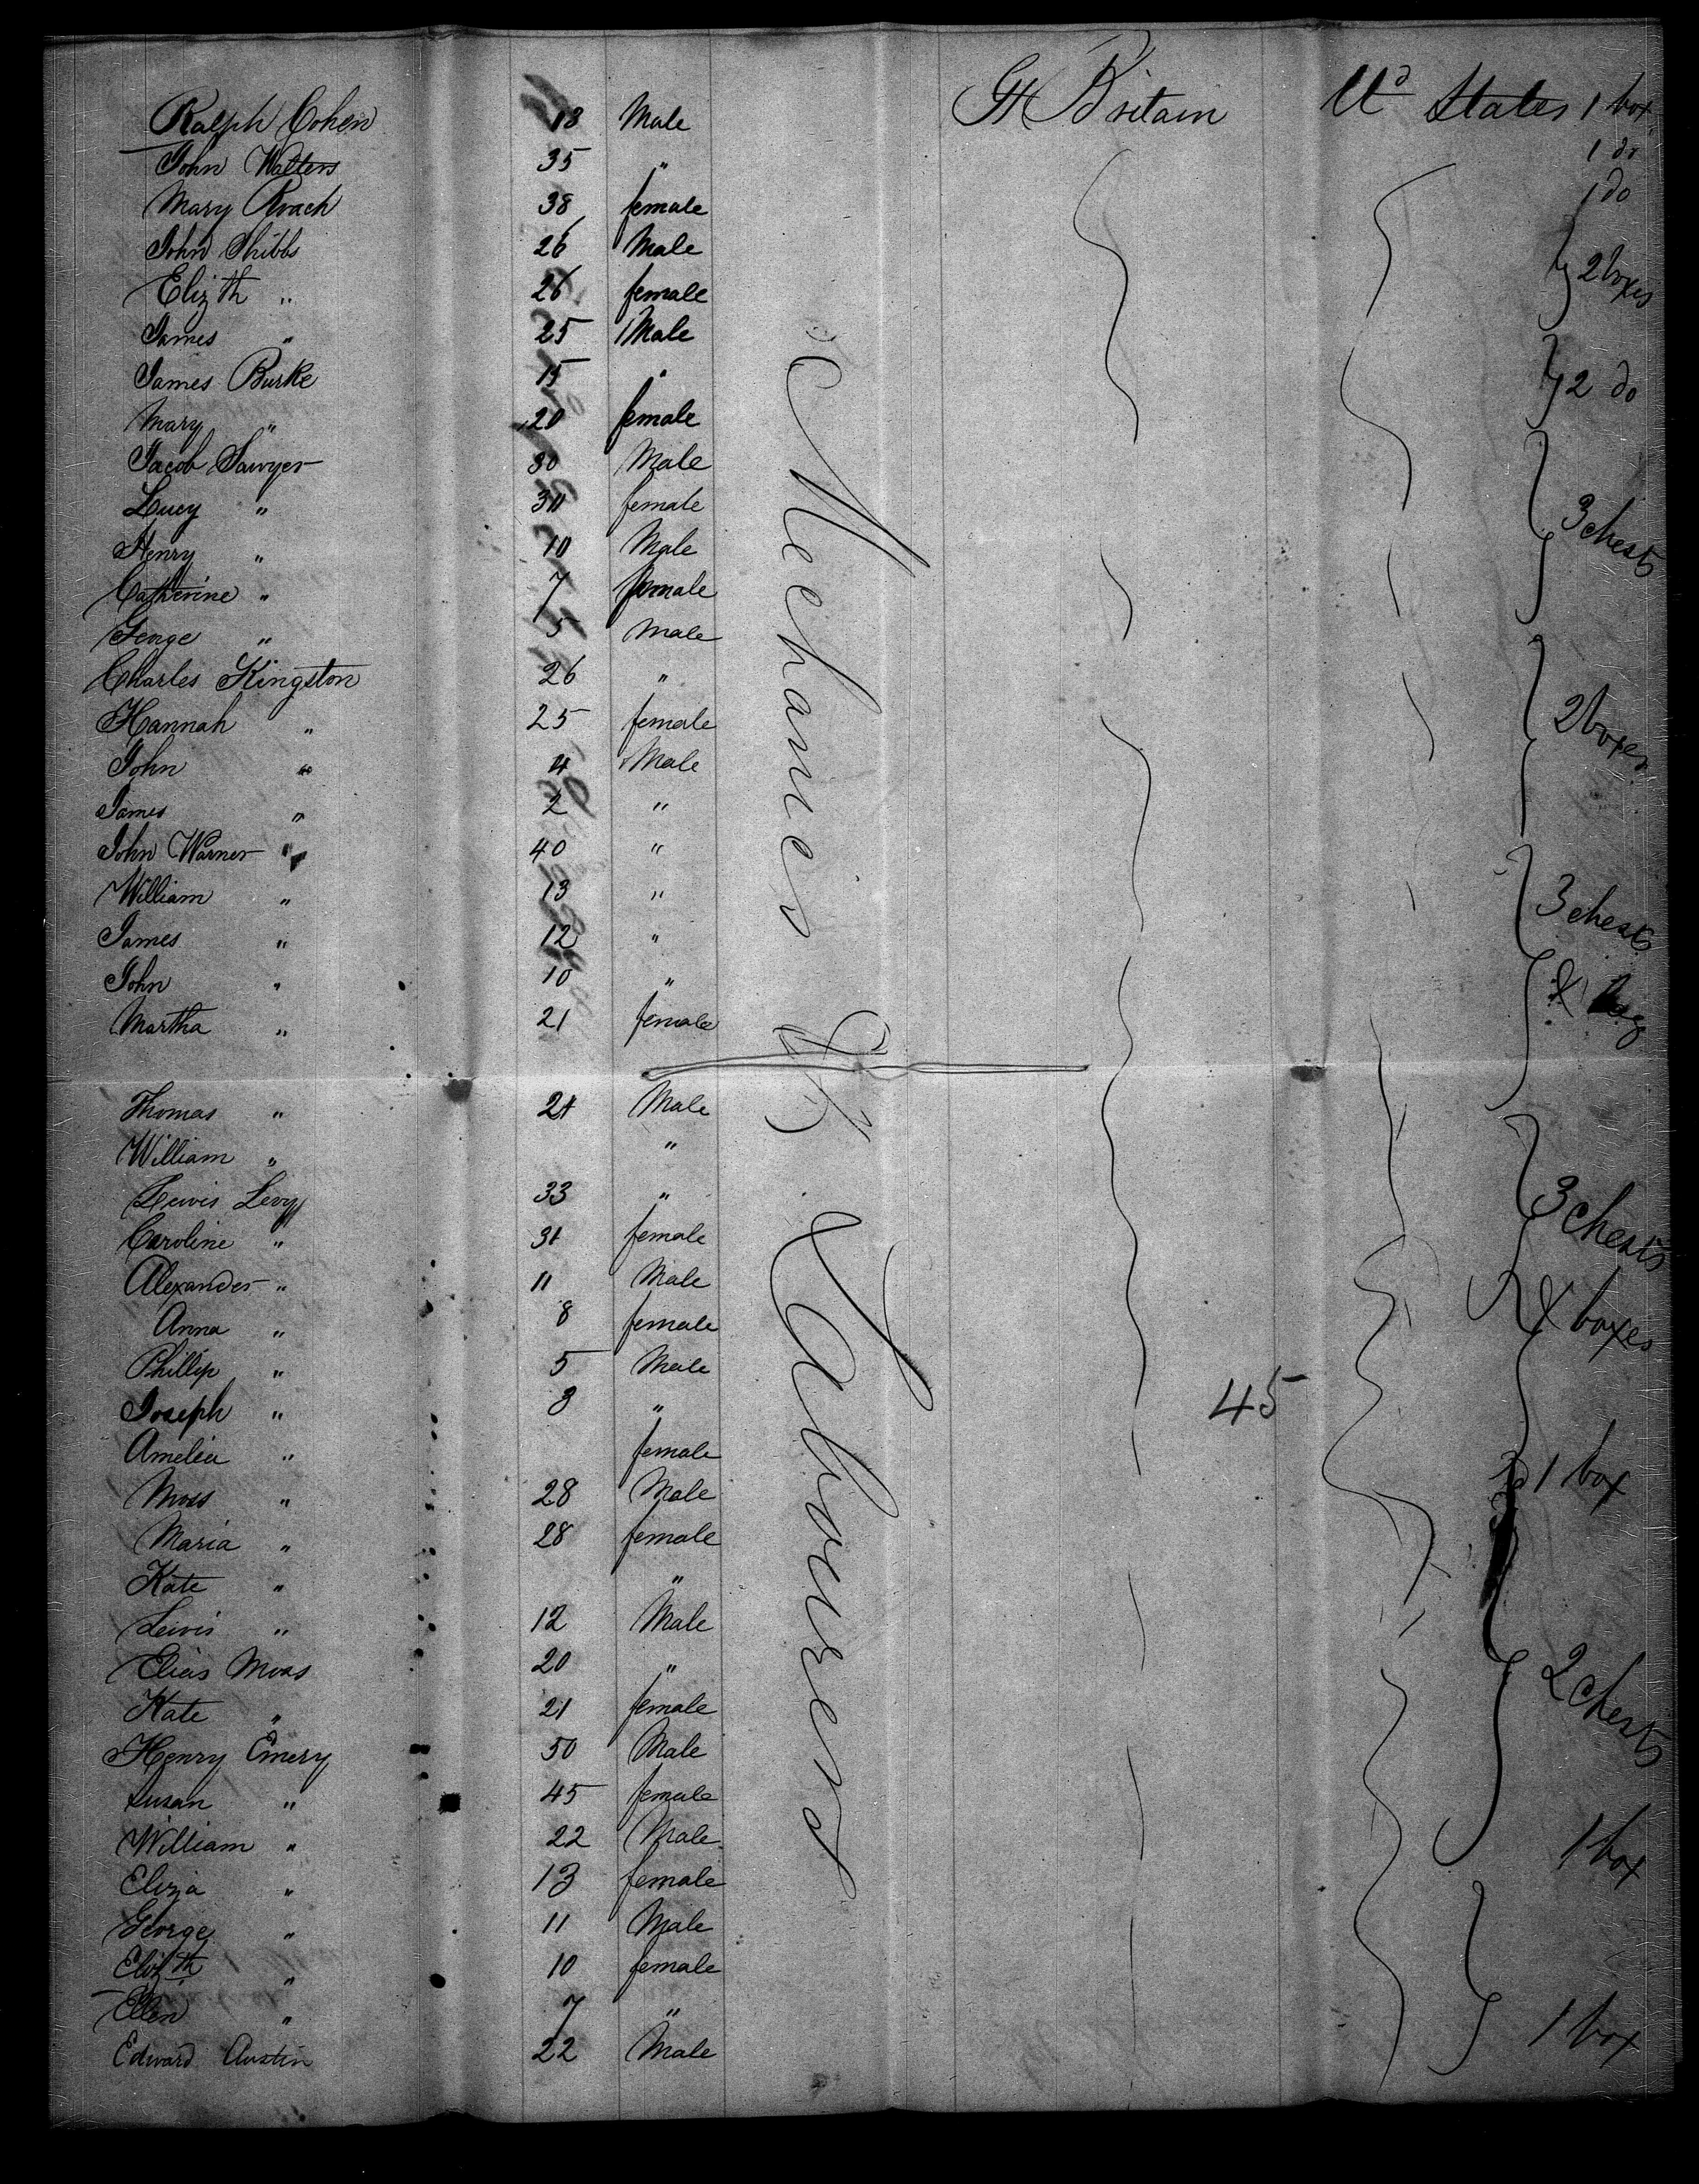 Ralph Cohen 18 Male Gt Britain Ud States 1 box
John Walters 35 " 1 do
Mary Roach 38 female 1 do
John Shibbs 26 Male
Elizth " 26 female 2 boxes
James " 25 Male
James Burke 15 " 2 do
Mary " 20 female
Jacob Sawyer 30 Male
Lucy " 30 female 3 chests
Henry " 10 Male
Catherine " 7 female
George " 5 Male
Charles Kingston 26 "
Hannah " 25 female 2 boxes
John " 4 Male
James " 2 "
John Warner " 40 "
William " 13 " 3 chests
James " 12 "
John " 10 " & bag
Martha " 21 female
Mechanics &
Thomas " 21 Male
William " "
Lewis Levy 33 " 3 chests
Caroline " 31 female
Alexander " 11 Male
Anna " 8 female & boxes
Phillip " 5 Male
Joseph " 3 " 45
Amelia " female
Moss " 28 Male 1 box
Maria " 28 female
Kate " "
Lewis " 12 Male
Elias Moss 20 "
Kate " 21 female 2 chests
Henry Emery 50 Male
Susan " 45 female
William " 22 Male 1 box
Eliza " 13 female
Labourers
George " 11 Male
Elizth " 10 female
Ellen " 7 "
Edward Austin 22 Male 1 box